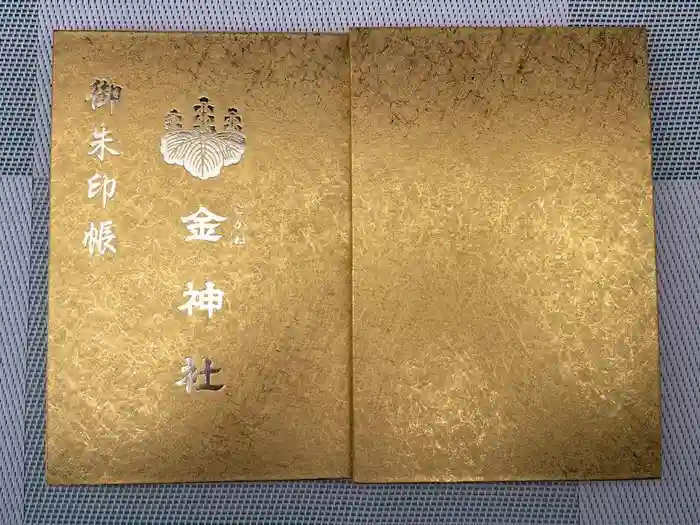 金神社
こがね
御朱印帳